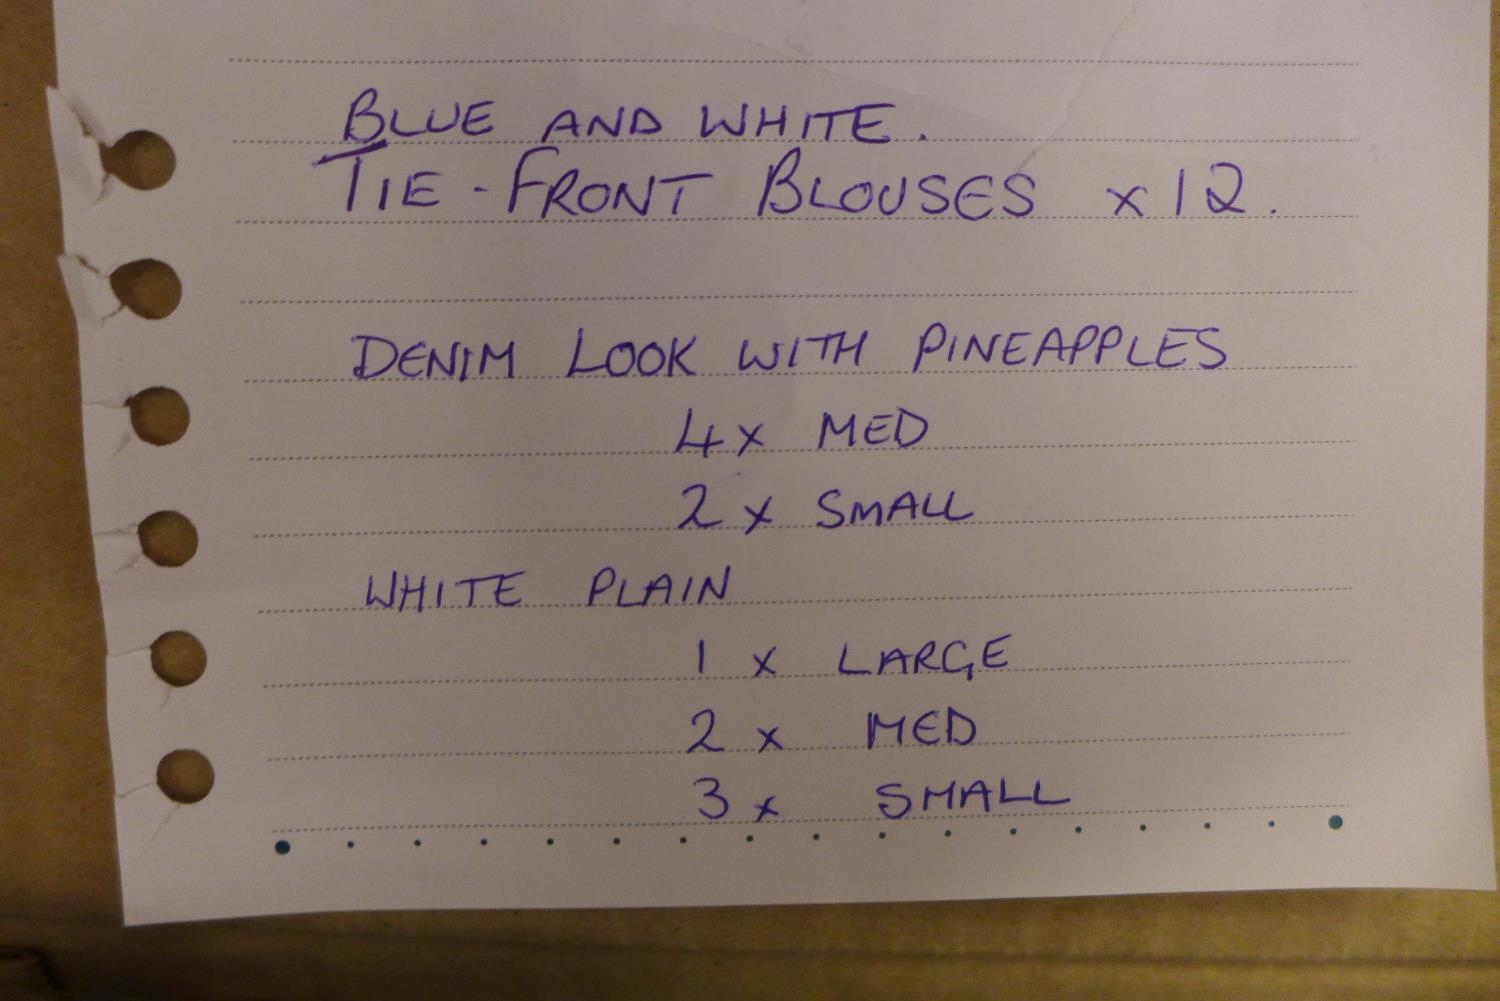 BLUE AND WHITE.
TIE-FRONT BLOUSES x12.
DENIM LOOK WITH PINEAPPLES
4x MED
2x SMALL
WHITE PLAIN
1 x LARGE
2 x MED
3 x SMALL